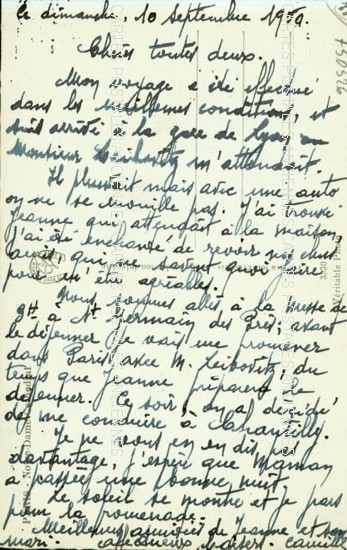 le dimanche, 10 Septembre 1950.
Chères toutes deux.
Mon voyage a été effectué
dans les meilleures conditions, et
suis arrivé à la gare de Lyon ou
Monsieur Leibovitz m'attendait.
Il pleuvait mais avec une auto
on ne se mouille pas. J'ai trouvé
Jeanne qui attendait à la maison,
j'ai été enchanté de revoir nos chers
amis qui ne savent quoi faire
pour m'être agréable.
Nous sommes allés à la messe de
9H à St Germain des Prés; avant
le déjeuner je vais me promener
dans Paris avec M. Leibovitz, du
temps que Jeanne préparera le
déjeuner. Ce soir, on a décidé
de me conduire à Chantilly.
Je ne vous en dit pas
davantage, j'espère que Maman
a passée une bonne nuit.
Le soleil se montre et je pars
pour la promenade.
Meilleures amitiés de Jeanne et son
mari. Affectueux baisers. Camille
PARIS - Notre-Dame
Véritable
730526